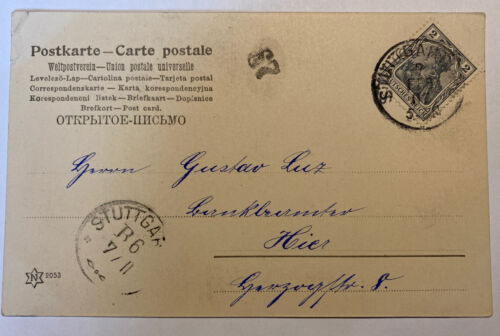 Postkarte — Carte postale
Weltpostverein — Union postale universelle
Levelező-Lap — Cartolina postale — Tarjeta postal
Correspondenzkarte - Karta korespondencyjna
Korespondenční lístek - Briefkaart - Dopisnice
Brefkort — Post card.
ОТКРЫТОЕ-ПИСЬМО
STUTTGART
2 2
Herrn Gustav Luz
Bankbeamter
Hier
Herzogstr. 8.
STUTTGAR
7/11
N 2053